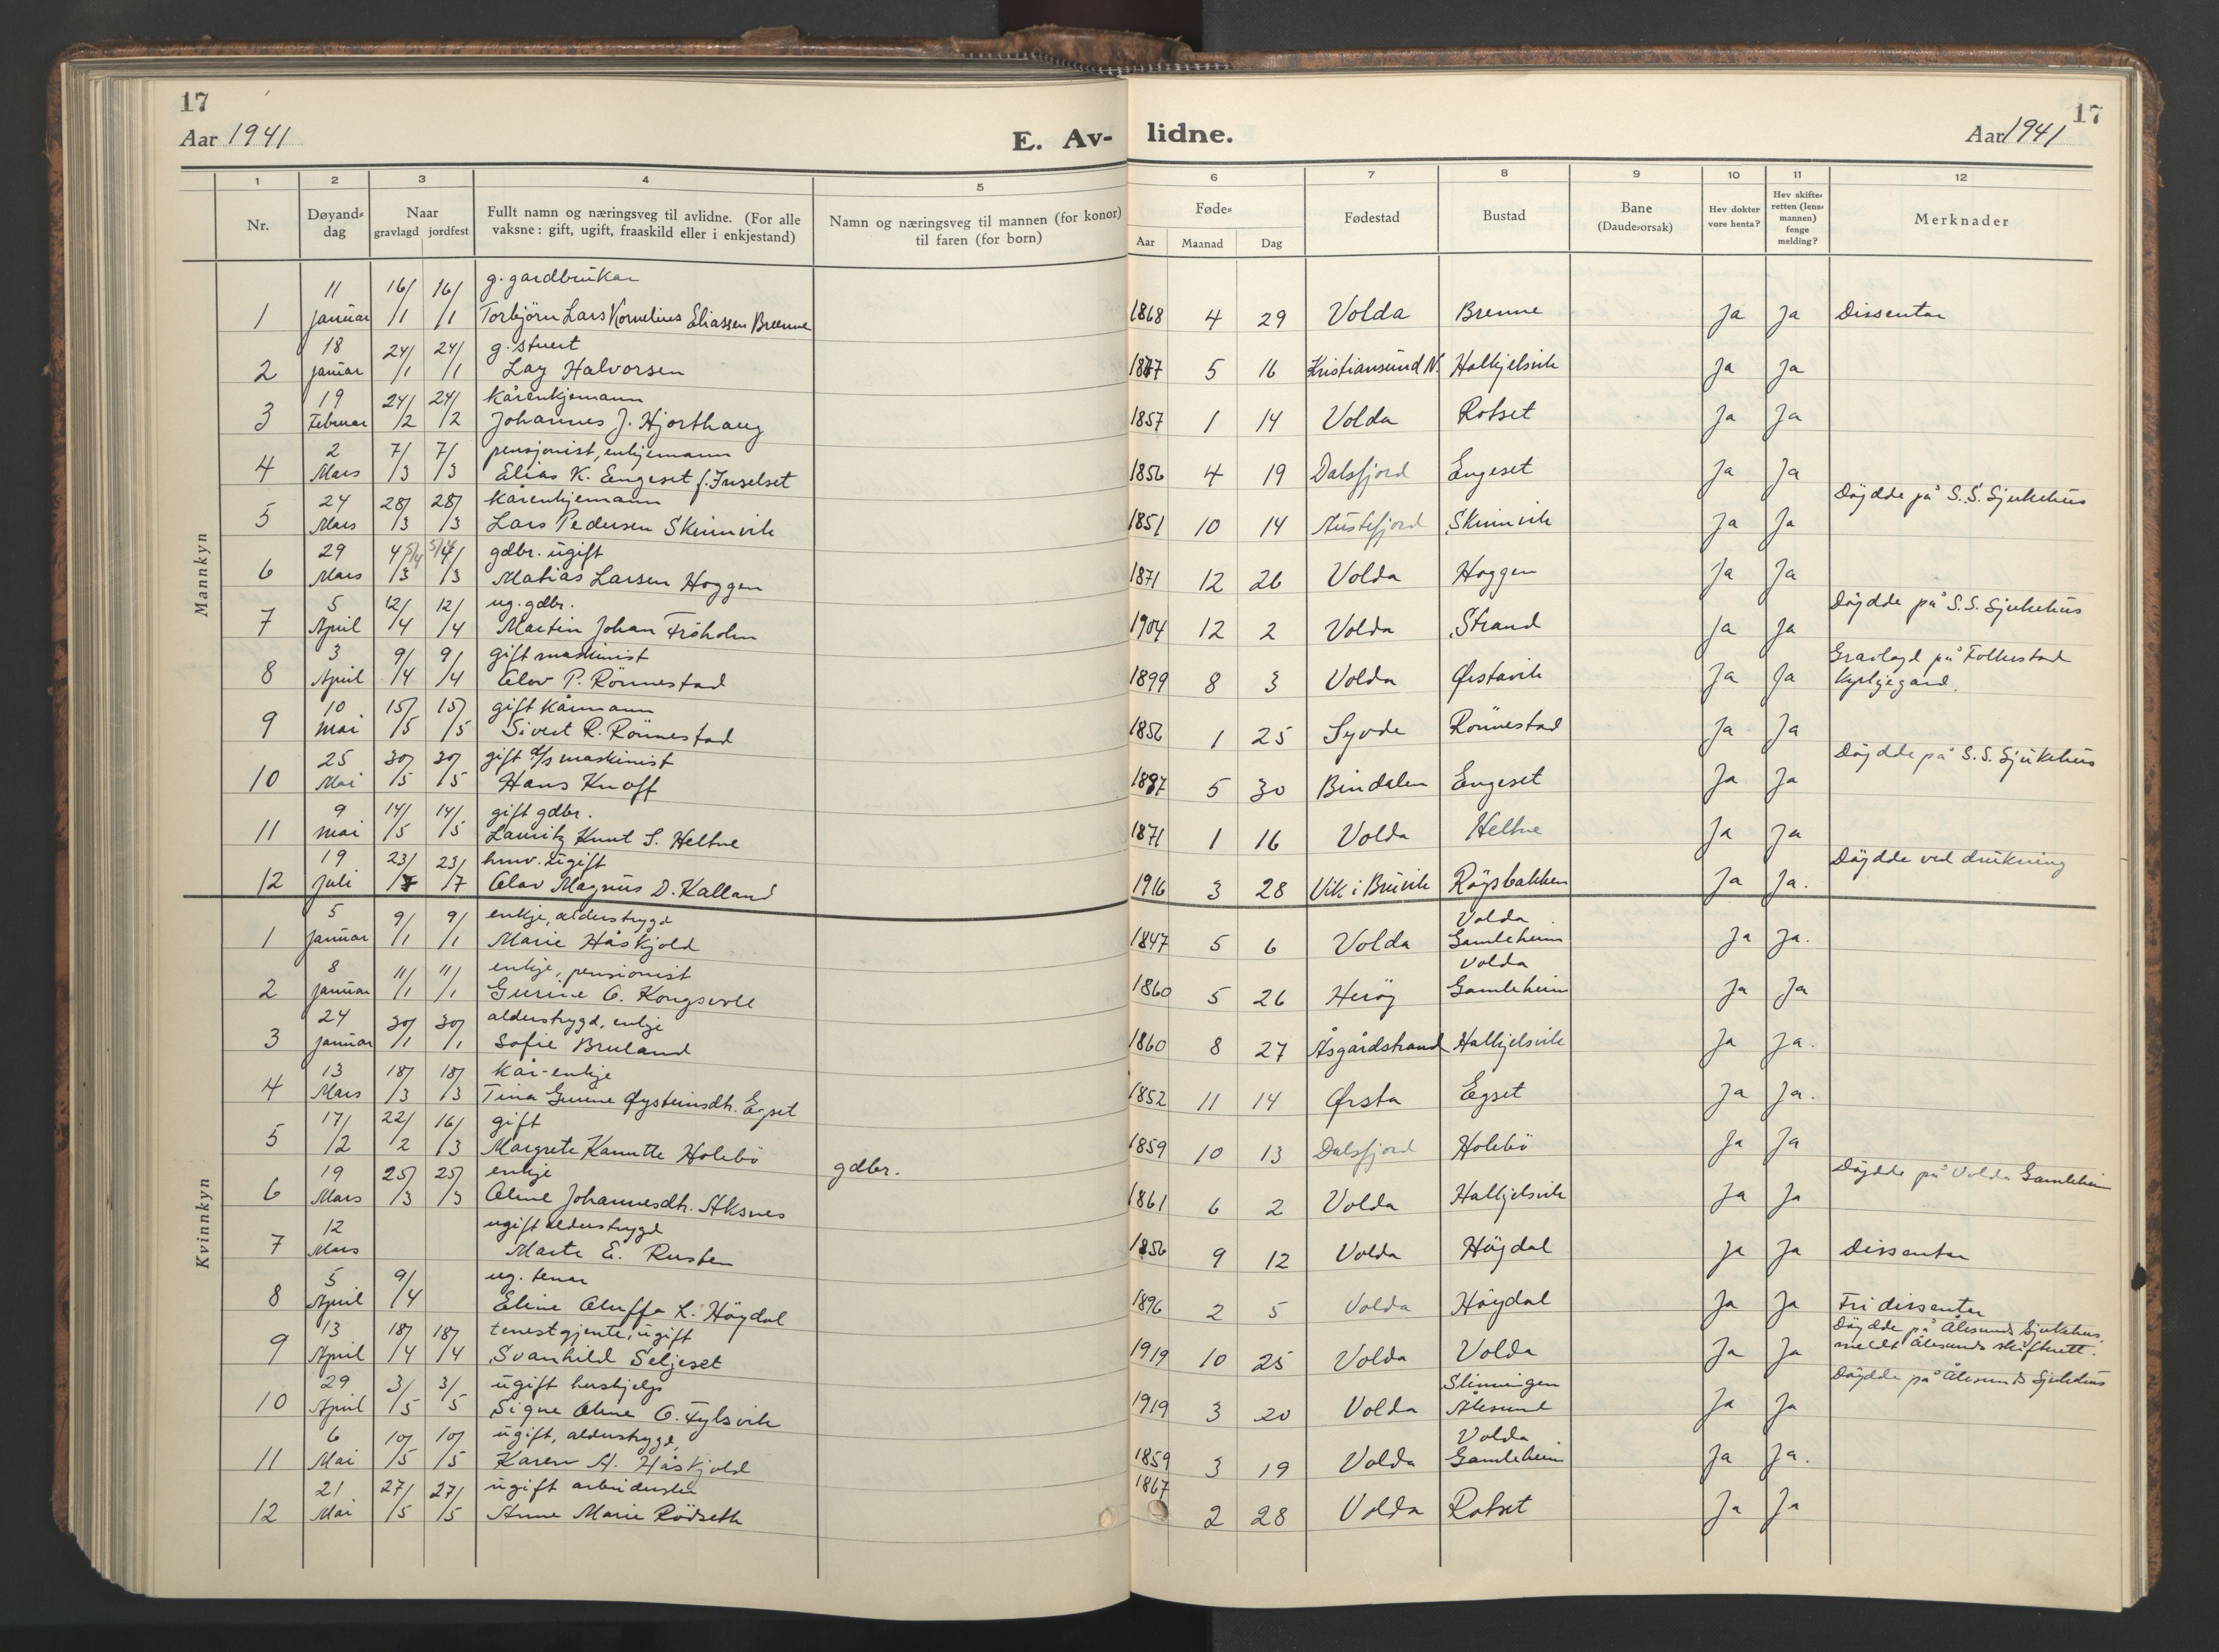 17
17
Aar 1941
E. Av-
lidne.
Aar 1941
1 2 3 4 5 6 7 8 9 10 11 12
Nr.
Døyand-dag
Naar gravlagd jordfest
Fullt namn og næringsveg til avlidne. (For alle vaksne: gift, ugift, fraaskild eller i enkjestand)
Namn og næringsveg til mannen (for konor) til faren (for born)
Føde-
Aar Maanad Dag
Fødestad
Bustad
Bane (Daude-orsak)
Hev dokter vore henta?
Hev skifte-retten (lens-mannen) fenge melding?
Merknader
Mannkyn
11 16/ 16/ g. gardbrukar
1 januar /1 /1 Torbjörn Lars Kornelius Eliassen Brenne 1868 4 29 Volda Brenne Ja Ja Dissentar
18 24/ 24/ g. stuert
2 januar /1 /1 Lay Halvorsen 1877 5 16 Kristiansund N. Halkjelsvik Ja Ja
19 24/ 24/ Kårenkjemann
3 Februar /2 /2 Johannes J. Hjorthaug 1857 1 14 Volda Rotset Ja Ja
2 7/ 7/ pensjonist, enkjemann
4 Mars /3 /3 Elias K. Engeset f. Furselset 1856 4 19 Dalsfjord Engeset Ja Ja
24 28/ 28/ Kårenkjemann Döydde på S.S. Sjukehus
5 Mars /3 /3 Lars Pedersen Skinnvik 1851 10 14 Austefjord Skinnvik Ja Ja
29 4/ 5/4 5/4 4/ gdbr. ugift
6 Mars /3 /3 Matias Larsen Hoggen 1871 12 26 Volda Hoggen Ja Ja
5 12/ 12/ ug. gdbr. Döydde på S.S. Sjukehus
7 April /4 /4 Martin Johan Fröholm 1904 12 2 Volda Strand Ja Ja
3 9/ 9/ gift maskinist Gravlagd på Folkestad
8 April /4 /4 Olov P. Rönnestad 1899 8 3 Volda Ørstavik Ja Ja Kyrkjegard.
10 15/ 15/ gift Kårmann
9 mai /5 /5 Sivert R. Rönnestad 1856 1 25 Syvde Rönnestad Ja Ja
25 30/ 30/ gift d/s maskinist Döydde på S.S. Sjukehus
10 Mai /5 /5 Hans Knoff 1887 5 30 Bindalen Engeset Ja Ja
9 14/ 14/ gift gdbr.
11 mai /5 /5 Lauritz Knut S. Heltne 1871 1 16 Volda Heltne Ja Ja
19 23/ 23/ ugift Döydde ved drukning
12 juli /7 /7 Olav Magnus D. Kalland 1916 3 28 Vik i Bruvik Röysbakken Ja Ja.
Kvinnkyn
5 9/ 9/ enkje, alderstrygd Volda
1 januar /1 /1 Marie Håskjold 1847 5 6 Volda Gamleheim Ja Ja.
8 11/ 11/ enkje, pensionist Volda
2 januar /1 /1 Gurine O. Kongsvoll 1860 5 26 Heröy Gamleheim Ja Ja
24 30/ 30/ alderstrygd, enkje
3 januar /1 /1 Sofie Bruland 1860 8 27 Åsgårdstrand Halkjelsvik Ja Ja.
13 18/ 18/ kår-enkje
4 Mars /3 /3 Tina Gurine Øysteinsdtr. Egset 1852 11 14 Ørsta Egset Ja Ja.
17/ 22/ 16/ gift
5 /2 2 /3 Margrete Kanutte Holebö gdbr. 1859 10 13 Dalsfjord Holebö Ja Ja
19 25/ 25/ enkje Döydde på Volda Gamleheim
6 Mars /3 /3 Oline Johannesdtr. Aksnes 1861 6 2 Volda Halkjelsvik Ja Ja
12 ugift alderstrygd
7 Mars Marte E. Rusten 1856 9 12 Volda Höydal Ja Ja Dissentar
5 9/ ug. tenar
8 April /4 Eline Oluffa L. Höydal 1896 2 5 Volda Höydal Ja Ja Fri dissentar
13 18/ 18/ tenestgjente, ugift Döydde på Ålesunds Sjukehus,
9 April /4 /4 Svanhild Seljeset 1919 10 25 Volda Volda Ja Ja meldt Ålesunds skifterett.
29 3/ 3/ ugift hushjelp Slinningen Döydde på Ålesunds Sjukehus
10 April /5 /5 Signe Oline O. Fylsvik 1919 3 20 Volda Ålesund Ja Ja
6 10/ 10/ ugift, alderstrygd, Volda
11 Mai /5 /5 Karen A. Håskjold 1859 3 19 Volda Gamleheim Ja Ja.
21 27/ 27/ ugift arbeiderske 1867
12 Mai /5 /5 Anne Marie Rödseth 2 28 Volda Rotset Ja Ja